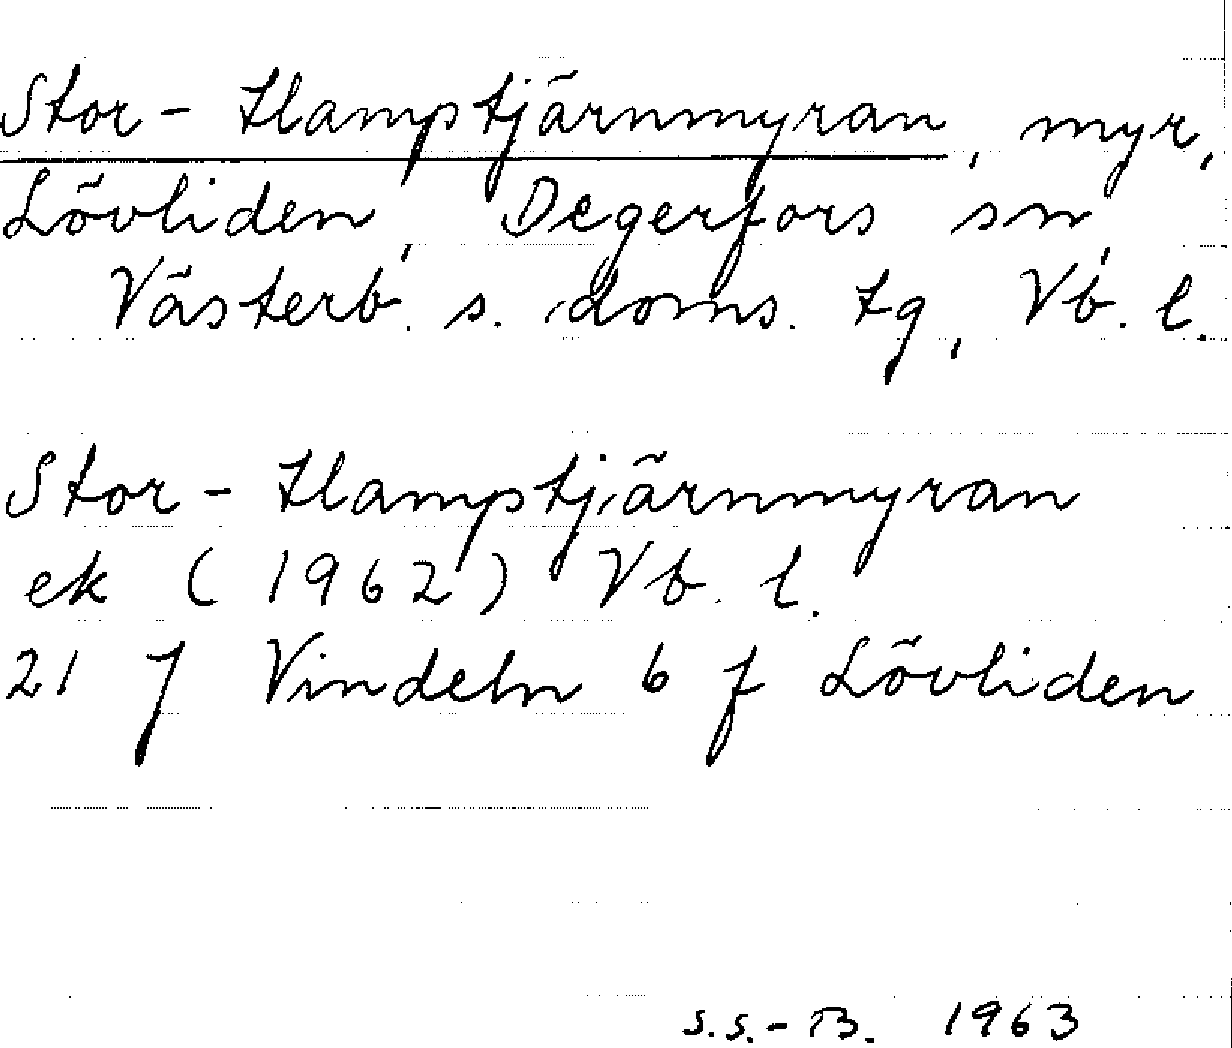 Stor-Hamptjärnmyran, myr,
Lövliden, Degerfors sn,
Västerb. s. doms. tg, Vb. l.
Stor-Hamptjärnmyran
ek (1962) Vb. l.
21 J Vindeln 6 f Lövliden
S.S.-B. 1963